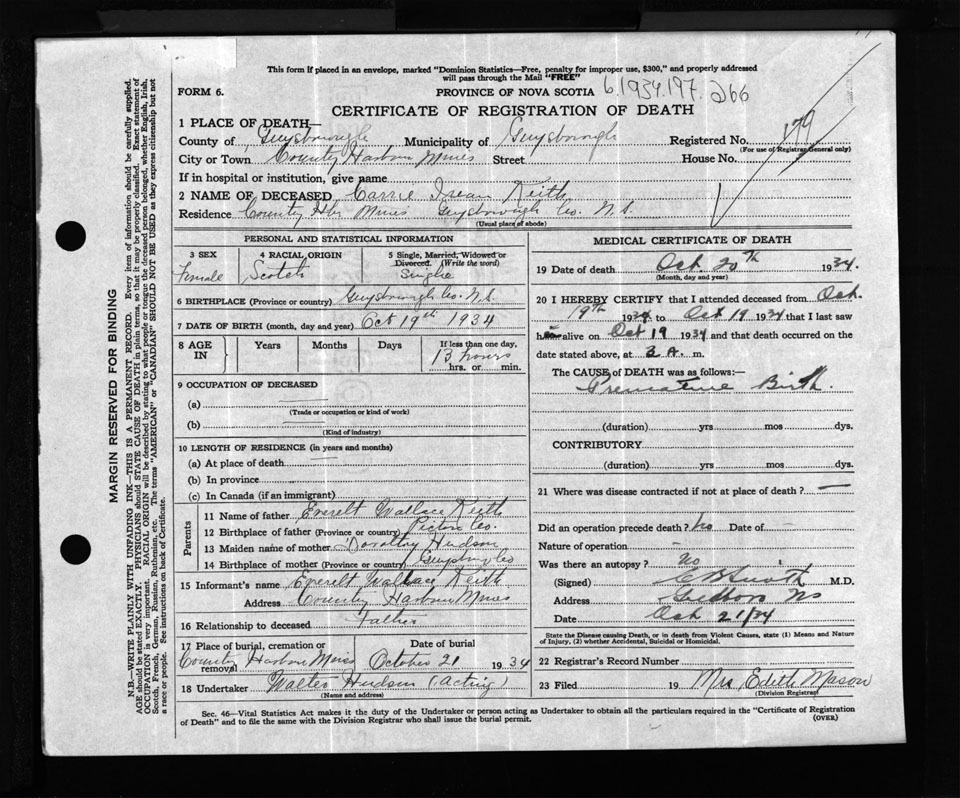 This form if placed in an envelope, marked "Dominion Statistics—Free, penalty for improper use, $300," and properly addressed
will pass through the Mail "FREE"
FORM 6. PROVINCE OF NOVA SCOTIA 6.1934.197. 266
CERTIFICATE OF REGISTRATION OF DEATH
1 PLACE OF DEATH—
County of Guysborough Municipality of Guysborough Registered No. 179
(For use of Registrar General only)
City or Town County Harbour Mines Street House No.
If in hospital or institution, give name
2 NAME OF DECEASED Carrie Irean Keith
Residence County Hbr Mines Guysborough Co. N.S.
(Usual place of abode)
PERSONAL AND STATISTICAL INFORMATION
3 SEX 4 RACIAL ORIGIN 5 Single, Married, Widowed or
Divorced. (Write the word)
Female Scotch Single
6 BIRTHPLACE (Province or country) Guysborough Co. N.S.
7 DATE OF BIRTH (month, day and year) Oct 19th 1934
8 AGE IN Years Months Days If less than one day,
13 hours
hrs. or min.
9 OCCUPATION OF DECEASED
(a)
(Trade or occupation or kind of work)
(b)
(Kind of industry)
10 LENGTH OF RESIDENCE (in years and months)
(a) At place of death
(b) In province
(c) In Canada (if an immigrant)
Parents
11 Name of father Everett Wallace Keith
12 Birthplace of father (Province or country) Pictou Co.
13 Maiden name of mother Dorothy Hudson
14 Birthplace of mother (Province or country) Guysboro Co
15 Informant's name Everett Wallace Keith
Address County Harbour Mines
16 Relationship to deceased Father
17 Place of burial, cremation or
removal Date of burial
County Harbour Mines October 21 1934
18 Undertaker Walter Hudson (Acting)
(Name and address)
MEDICAL CERTIFICATE OF DEATH
19 Date of death Oct. 20th 1934.
(Month, day and year)
20 I HEREBY CERTIFY that I attended deceased from Oct.
19th 1934 to Oct 19 1934 that I last saw
h alive on Oct 19 1934 and that death occurred on the
date stated above, at 3 A. m.
The CAUSE of DEATH was as follows:—
Premature Birth.
(duration) yrs mos dys.
CONTRIBUTORY
(duration) yrs. mos. dys.
21 Where was disease contracted if not at place of death? —
Did an operation precede death? no Date of –
Nature of operation –
Was there an autopsy? No
(Signed) M.D.
Address NS
Date Oct 21/34
State the Disease causing Death, or in death from Violent Causes, state (1) Means and Nature
of Injury, (2) whether Accidental, Suicidal or Homicidal.
22 Registrar's Record Number
23 Filed 19 Mrs Edith Mason
(Division Registrar)
Sec. 46—Vital Statistics Act makes it the duty of the Undertaker or person acting as Undertaker to obtain all the particulars required in the "Certificate of Registration
of Death" and to file the same with the Division Registrar who shall issue the burial permit.
(OVER)
MARGIN RESERVED FOR BINDING
N.B.—WRITE PLAINLY WITH UNFADING INK—THIS IS A PERMANENT RECORD. Every item of information should be carefully supplied.
AGE should be stated EXACTLY. PHYSICIANS should STATE CAUSE OF DEATH in plain terms, so that it may be properly classified. Exact statement of
OCCUPATION is very important. RACIAL ORIGIN will be described by stating to what people or tongue the deceased person belonged, whether English, Irish,
Scotch, French, German, Russian, Ruthenian, etc. The terms "AMERICAN" or "CANADIAN" SHOULD NOT BE USED as they express citizenship but not
a race or people. See instructions on back of Certificate.